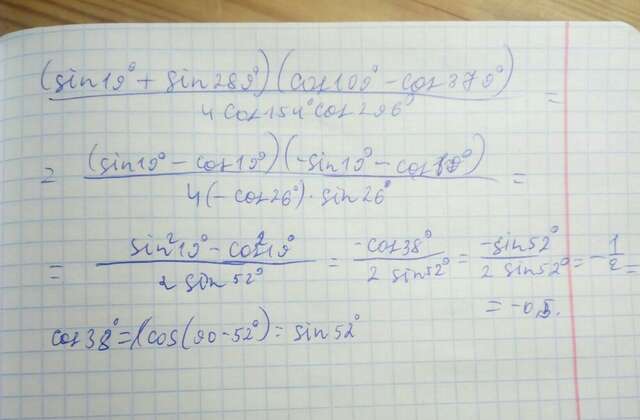 (sin19° + sin289°)(cos109° - cos379°) / 4cos154° cos296° =
= (sin19° - cos19°)(-sin19° - cos19°) / 4(-cos26°)·sin26° =
= sin²19° - cos²19° / 2 sin52° = -cos38° / 2 sin52° = -sin52° / 2 sin52° = -1/2 =
= -0,5.
cos38° = (cos(90-52°) = sin52°